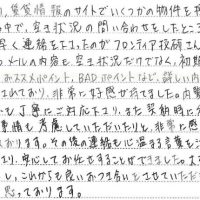 、賃貸情報のサイトでいくつかの物件を検
中で、空き状況の問い合わせをしたところ
早く連絡を下さったのがフロンティア技研さん
メールの内容も空き状況だけでなく、初期
おススメポイント、BADポイントなど、詳しい内
ており、非常に好感が持てました。内覧
も丁寧にご対応下さり、また契約時に
事情も考慮していただいたりと、非常に感
おります。その後の連絡も心温まる言葉を
り、安心してお任せすることができました。
し、これからも良いお付き合いをさせていただ
思っております。